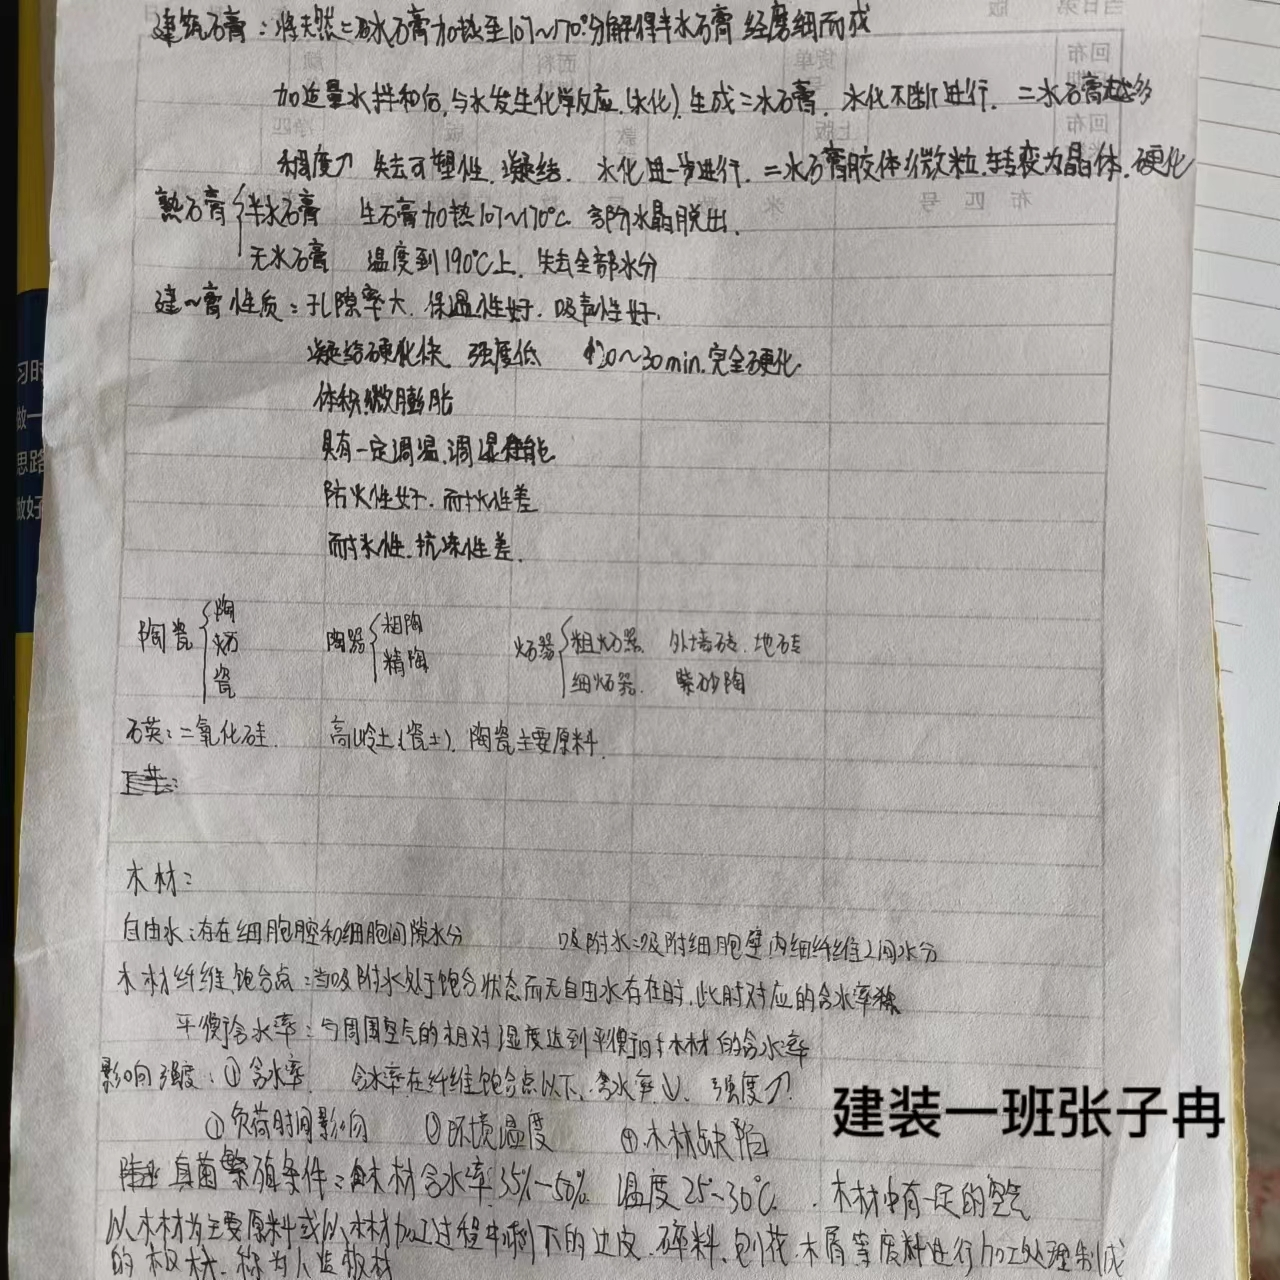 建筑石膏：将天然二水石膏加热至107~170°分解得半水石膏 经磨细而成
加适量水拌和后,与水发生化学反应(水化),生成二水石膏. 水化不断进行. 二水石膏越多
稠度↗ 失去可塑性. 凝结. 水化进一步进行. 二水石膏胶体微粒转变为晶体. 硬化
熟石膏 半水石膏 生石膏加热107~170℃ 部分水晶脱出.
无水石膏 温度到190℃上. 失去全部水分
建~膏性质：孔隙率大. 保温性好. 吸声性好.
凝结硬化快 强度低 20~30min.完全硬化.
体积微膨胀
具有一定调温.调湿性能
防火性好. 耐火性差
耐水性.抗冻性差.
陶瓷 陶 炻 瓷 陶器 粗陶 精陶 炻器 粗炻器 外墙砖. 地砖
细炻器. 紫砂陶
石英：二氧化硅. 高岭土(瓷土). 陶瓷主要原料.
木材：
自由水：存在细胞腔和细胞间隙水分 吸附水：吸附细胞壁内细纤维之间水分
木材纤维饱合点：当吸附水处于饱合状态而无自由水存在时.此时对应的含水率
平衡含水率：与周围空气的相对湿度达到平衡时木材的含水率
影响强度：①含水率. 含水率在纤维饱合点以下.含水率↓. 强度↗
②负荷时间影响 ③环境温度 ④木材缺陷
真菌繁殖条件：木材含水率35%~50% 温度25~30℃. 木材中有一定的空气
从木材为主要原料或以木材加工过程中剩下的边皮.碎料.刨花.木屑等废料进行加工处理制成
的板材.称为人造板材
建装一班张子冉